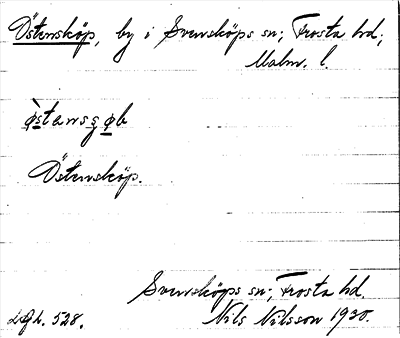 Östensköp, by i Svensköps sn; Frosta hd;
Malm. l.
ø̀stansgøb
Östensköp.
Svensköps sn; Frosta hd.
Nils Nilsson 1930.
528.